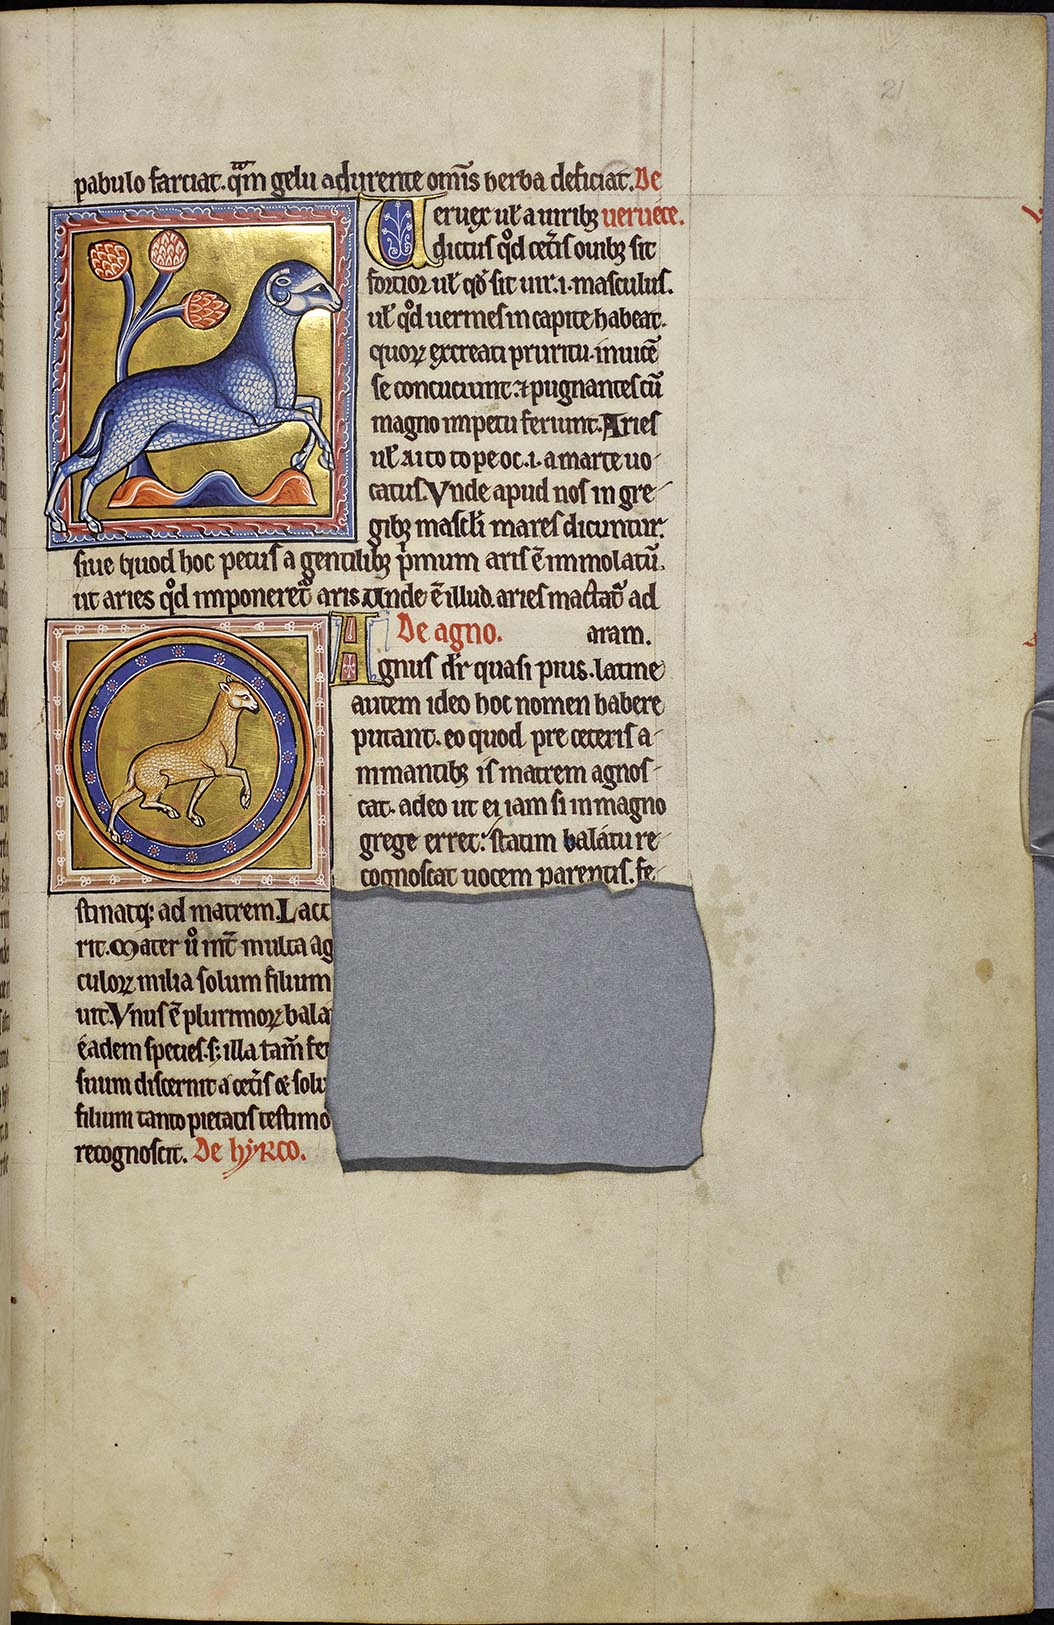 21
pabulo farciat. qm̄ gelu adurente omīs herba deficiat. De
Veruex ul̄ a uiribꝫ ueruece.
dictus qd̄ cet̄is ouibꝫ sit
fortior ul̄ qd̄ sit uir .i. masculus.
ul̄ qd̄ uermes in capite habeat.
quoꝝ excreati pruritu. inuicē
se concutiunt. ⁊ pugnantes cū
magno impetu feriunt. Aries
ul̄ ai to to pe oc .i. a marte uo-
catus. Vnde apud nos in gre-
gibꝫ mascl̄i mares dicuntur.
siue quod hoc pecus a gentilibꝫ pͥmum aris ē immolatū.
ut aries qd̄ imponeret᷑ aris. Unde ē illud. aries mactat᷑ ad
De agno. aram.
Agnus dr̄ quasi pius. latine
autem ideo hoc nomen habere
putant. eo quod pre ceteris a-
nimantibꝫ is matrem agnos-
cat. adeo ut ei iam si in magno
grege erret: statim balatu re-
cognoscat uocem parentis. fe-
stinatqꝫ ad matrem. Lact
rit. Mater ū int̄ multa ag
culoꝝ milia solum filium
uit. Vnus ē plurimoꝝ bala
eadem species. sꝫ illa tam̄ fe
suum discernit a cet̄is & solu
filium tanto pietatis testimo
recognoscit. De hyrco.